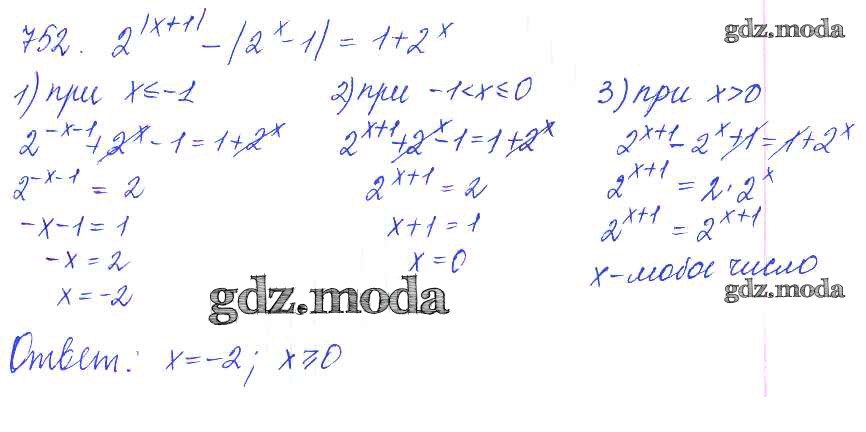 752. 2^{|x+1|} - |2^x - 1| = 1 + 2^x
gdz.moda
1) при x ≤ -1
2^{-x-1} + 2^x - 1 = 1 + 2^x
2^{-x-1} = 2
-x-1 = 1
-x = 2
x = -2
2) при -1 < x ≤ 0
2^{x+1} + 2^x - 1 = 1 + 2^x
2^{x+1} = 2
x+1 = 1
x = 0
3) при x > 0
2^{x+1} - 2^x + 1 = 1 + 2^x
2^{x+1} = 2 · 2^x
2^{x+1} = 2^{x+1}
x - любое число
gdz.moda
gdz.moda
Ответ: x = -2; x ≥ 0